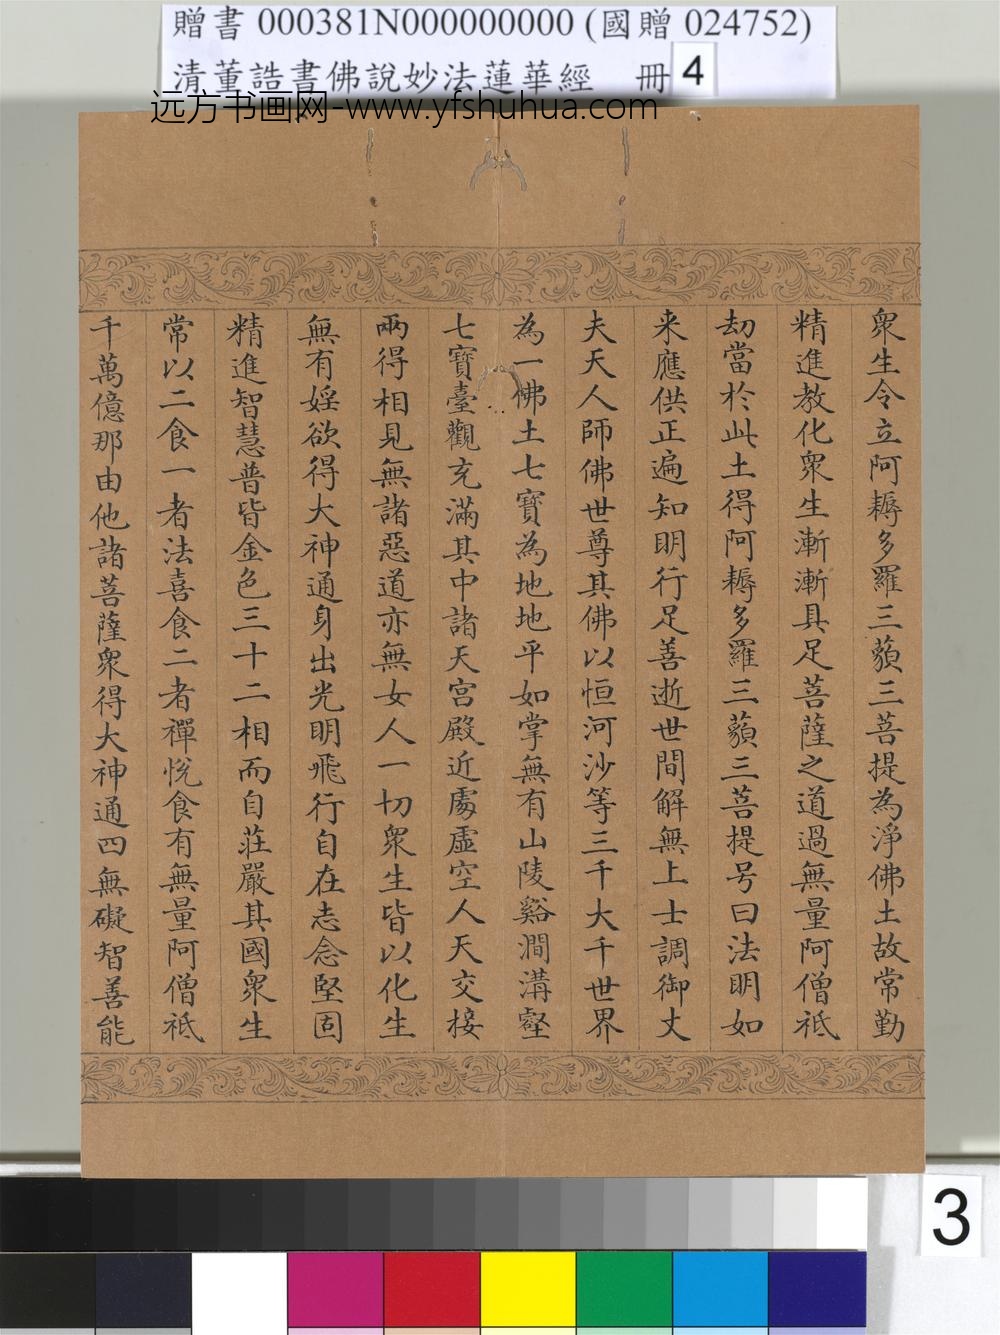 贈書 000381N000000000 (國贈 024752)
清董誥書佛說妙法蓮華經 冊 4
远方书画网-www.yfshuhua.com
眾生令立阿耨多羅三藐三菩提為淨佛土故常勤
精進教化眾生漸漸具足菩薩之道過無量阿僧祇
劫當於此土得阿耨多羅三藐三菩提号曰法明如
来應供正遍知明行足善逝世間解無上士調御丈
夫天人師佛世尊其佛以恒河沙等三千大千世界
為一佛土七寶為地地平如掌無有山陵谿澗溝壑
七寶臺觀充滿其中諸天宮殿近處虛空人天交接
兩得相見無諸惡道亦無女人一切眾生皆以化生
無有婬欲得大神通身出光明飛行自在志念堅固
精進智慧普皆金色三十二相而自莊嚴其國眾生
常以二食一者法喜食二者禪悅食有無量阿僧祇
千萬億那由他諸菩薩眾得大神通四無礙智善能
3